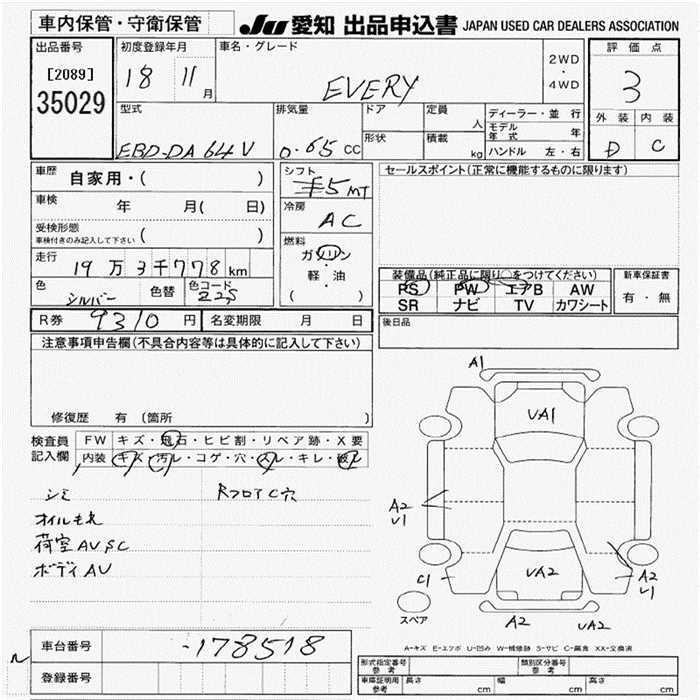 車内保管・守衛保管
JU 愛知 出品申込書 JAPAN USED CAR DEALERS ASSOCIATION
出品番号
[2089]
35029
初度登録年月
18 11 月
車名・グレード
EVERY
2WD
・
4WD
評価点
3
外装 内装
D C
型式
EBD-DA64V
排気量
0.65 CC
ドア
形状
定員 人
積載 kg
ディーラー・並行
モデル年式 年
ハンドル 左・右
車歴 自家用・( )
車検 年 月( 日)
受検形態
車検付きのみ記入して下さい ( )
走行 19万3千778km
色 シルバー 色替 色コード Z2S
シフト
手5 MT
冷房
AC
燃料
ガソリン
・
軽・油
( )
セールスポイント(正常に機能するものに限ります)
装備品(純正品に限り○をつけてください)
PS PW エアB AW
SR ナビ TV カワシート
新車保証書
有・無
後日品
R券 9310 円 名変期限 月 日
注意事項申告欄(不具合内容等は具体的に記入して下さい)
修復歴 有 (箇所
検査員
記入欄
FW キズ・飛石・ヒビ割・リペア跡・X要
内装 キズ・汚レ・コゲ・穴・スレ・キレ・破レ
シミ RフロアC穴
オイルもれ
荷室AUSC
ボディAU
A1
UA1
A2
U1
C1
UA2
A2
U1
スペア
A2
UA2
A-キズ E-エクボ U-凹み W-補修跡 S-サビ C-腐食 XX-交換済
車台番号 -178518
登録番号
型式指定番号
参考
類別区分番号
参考
車庫証明用
参考
長さ cm 幅 cm 高さ cm